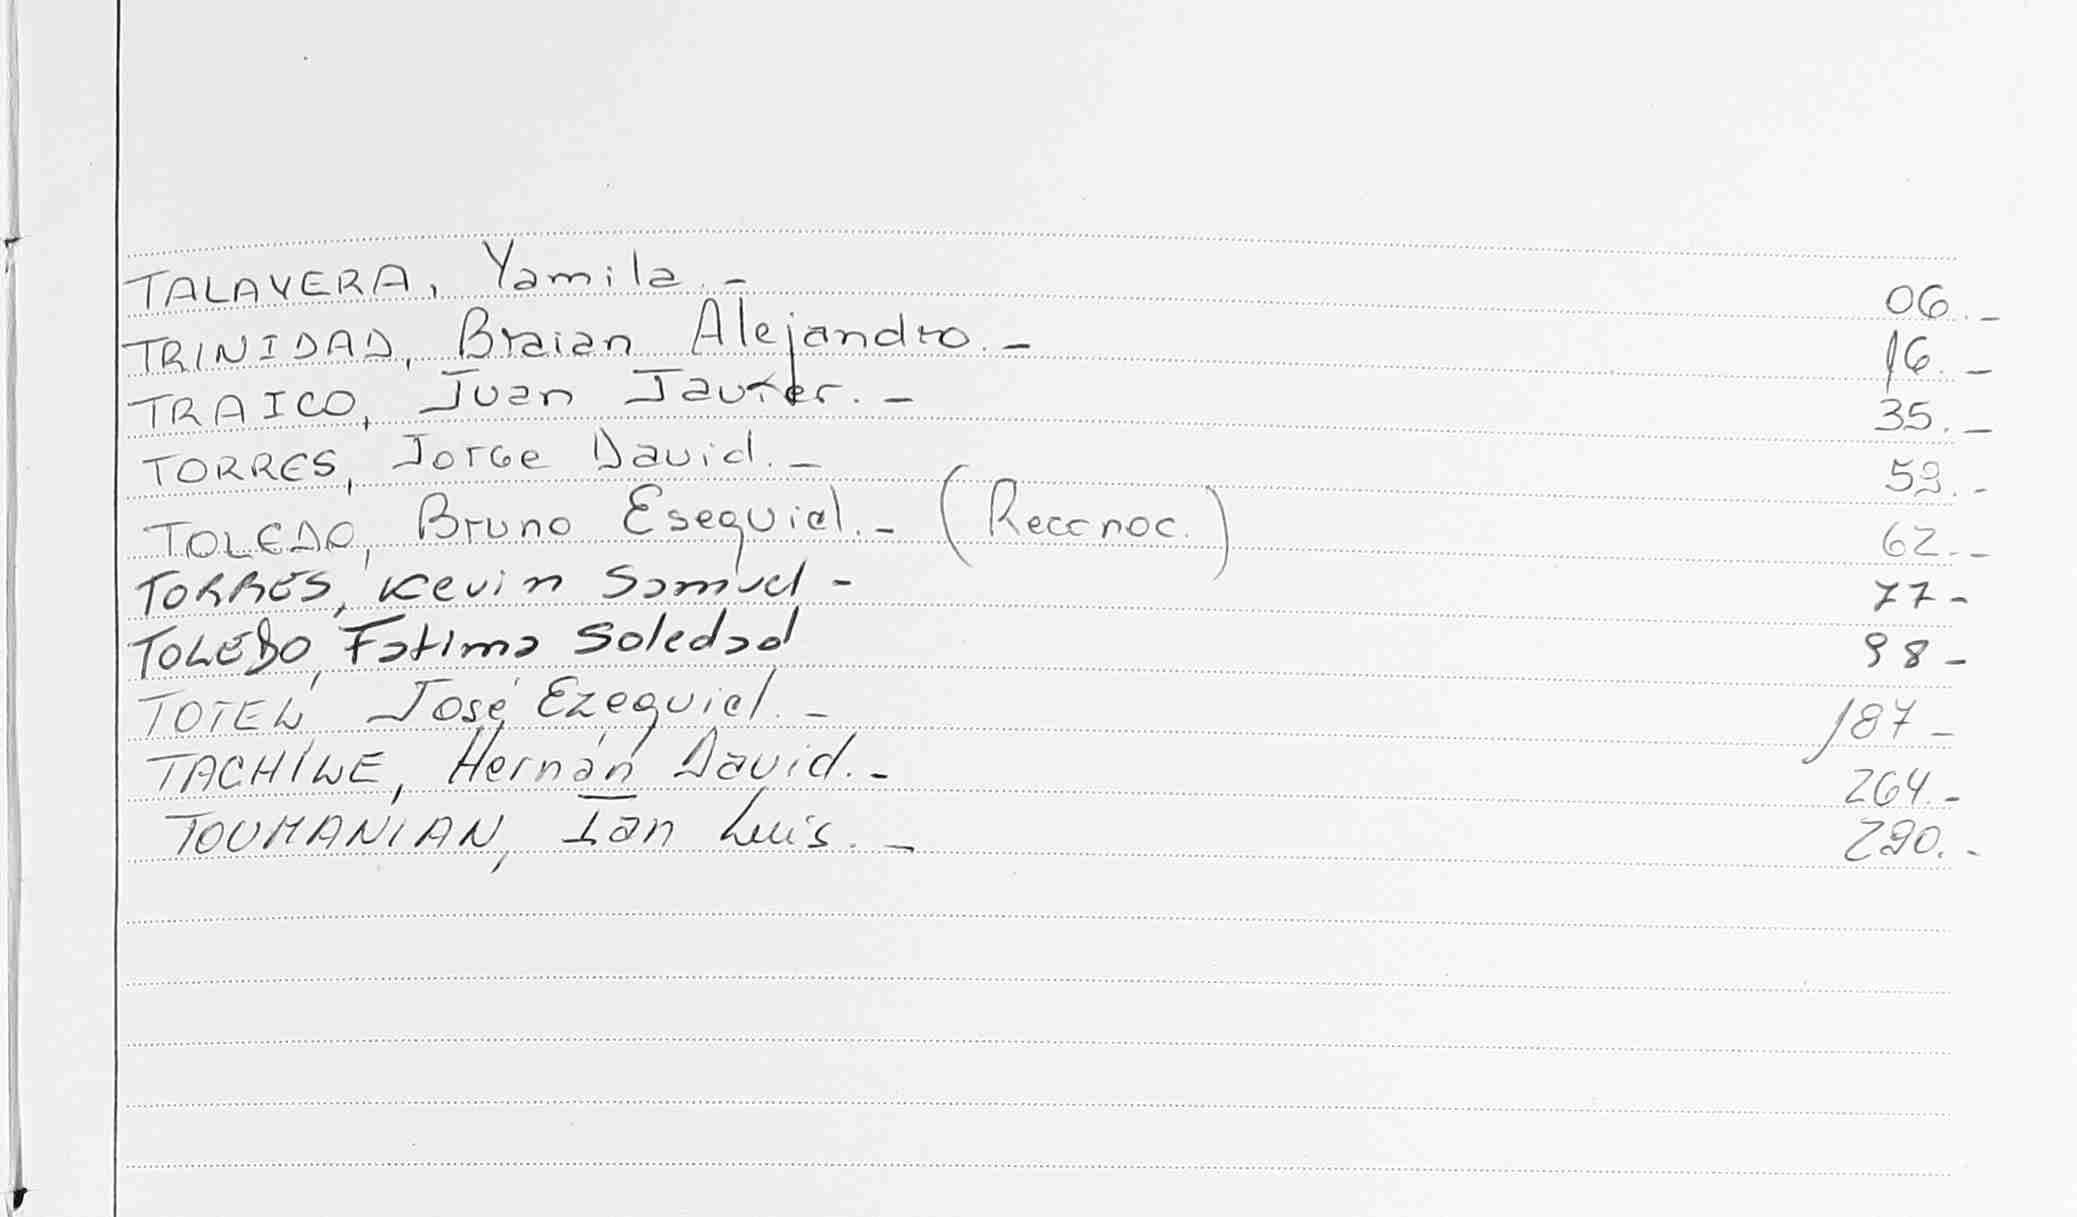 TALAVERA, Yamila.- 06.-
TRINIDAD, Braian Alejandro.- 16.-
TRAICO, Juan Javier.- 35.-
TORRES, Jorge David.- 59.-
TOLEDO, Bruno Esequiel.- (Reconoc.) 62.-
TORRES, Kevin Samuel - 77-
TOLEDO, Fatima Soledad 98-
José Ezequiel.- 187-
Hernán David.- 264.-
TOUMANIAN, Ian Luis.- 290.-